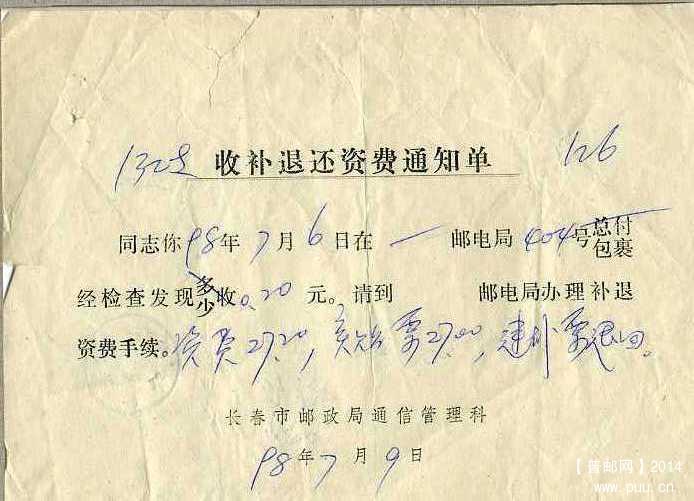 收补退还资费通知单 126
同志你98年7月6日在一邮电局404号总付包裹
经检查发现多少收0.20元。请到 邮电局办理补退
资费手续。资费27.20,实贴票27.00,速补票退回。
长春市邮政局通信管理科
98年7月9日
【普邮网】2014
www.puu.cn